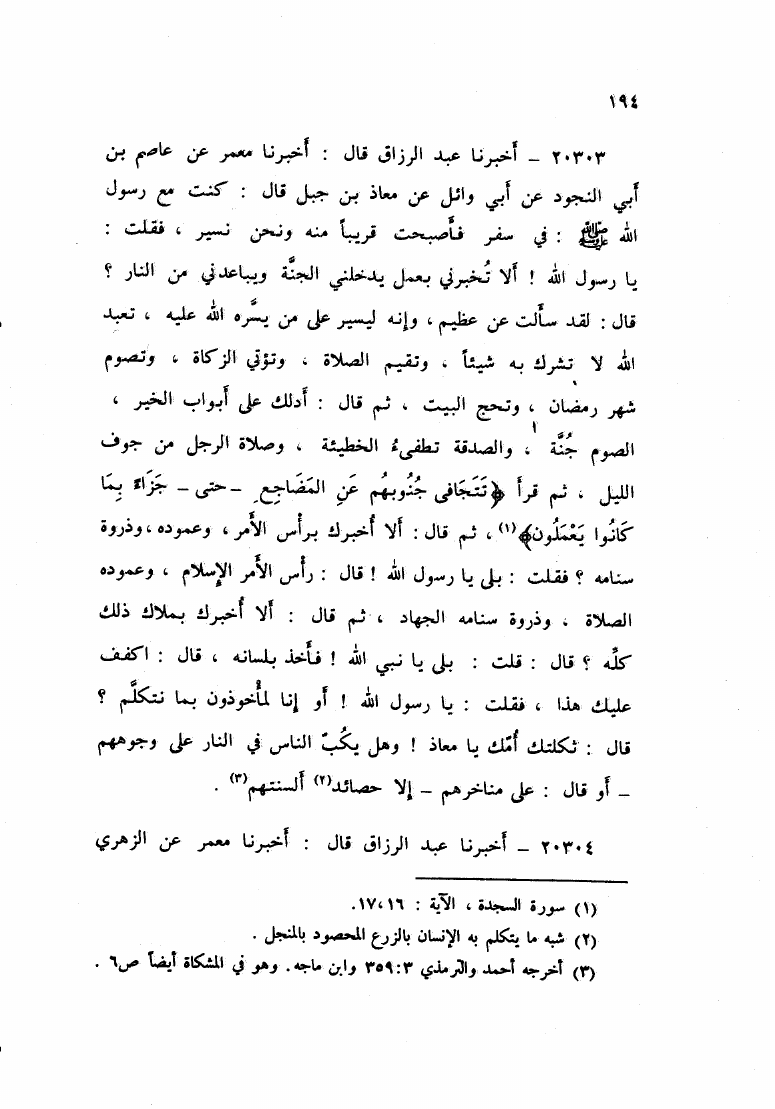 ١٩٤
٢٠٣٠٣ – أخبرنا عبد الرزاق قال : أخبرنا معمر عن عاصم بن
أبي النجود عن أبي وائل عن معاذ بن جبل قال : كنت مع رسول
الله ﷺ : في سفر فأصبحت قريباً منه ونحن نسير ، فقلت :
يا رسول الله ! ألا تُخبرني بعمل يدخلني الجنَّة ويباعدني من النار ؟
قال : لقد سألت عن عظيم ، وإنه ليسير على من يسَّره الله عليه ، تعبد
الله لا تشرك به شيئاً ، وتقيم الصلاة ، وتؤتي الزكاة ، وتصوم
شهر رمضان ، وتحج البيت ، ثم قال : أدلك على أبواب الخير ،
الصوم جُنَّة ، والصدقة تطفىءُ الخطيئة ، وصلاة الرجل من جوف
الليل ، ثم قرأ ﴿تَتَجَافى جُنُوبهُم عَنِ المَضَاجِعِ – حتى – جَزَاءً بِمَا
كَانُوا يَعْمَلُون﴾(١) ، ثم قال : ألا أُخبرك برأس الأمر ، وعموده ، وذروة
سنامه ؟ فقلت : بلى يا رسول الله ! قال : رأس الأمر الإسلام ، وعموده
الصلاة ، وذروة سنامه الجهاد ، ثم قال : ألا أُخبرك بملاك ذلك
كلِّه ؟ قال : قلت : بلى يا نبي الله ! فأخذ بلسانه ، قال : اكفف
عليك هذا ، فقلت : يا رسول الله ! أو إنا لمأْخوذون بما نتكلَّم ؟
قال : ثكلتك أُمّك يا معاذ ! وهل يكُبّ الناس في النار على وجوههم
– أو قال : على مناخرهم – إلا حصائد(٢) ألسنتهم(٣) .
٢٠٣٠٤ – أخبرنا عبد الرزاق قال : أخبرنا معمر عن الزهري
(١) سورة السجدة ، الآية : ١٧،١٦.
(٢) شبه ما يتكلم به الإنسان بالزرع المحصود بالمنجل .
(٣) أخرجه أحمد والترمذي ٣٥٩:٣ وابن ماجه . وهو في المشكاة أيضاً ص٦ .